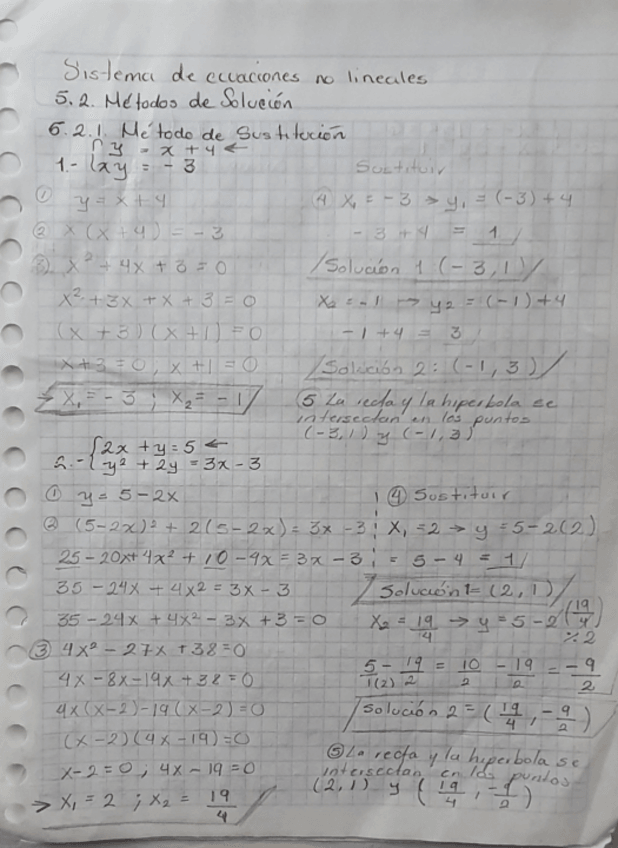 Sistema de ecuaciones no lineales
5.2. Métodos de Solución
5.2.1. Método de Sustitución
1.- { y = x + 4 ←
xy = -3
① y = x + 4
② x(x+4) = -3
③ x² + 4x + 3 = 0
x² + 3x + x + 3 = 0
(x + 3)(x + 1) = 0
x+3 = 0, x + 1 = 0
→ x₁ = -3 ; x₂ = -1
Sustituir
④ x₁ = -3 → y₁ = (-3) + 4
-3 + 4 = 1
Solución 1 (-3, 1)
x₂ = -1 → y₂ = (-1) + 4
-1 + 4 = 3
Solución 2: (-1, 3)
⑤ La recta y la hiperbola se
intersectan en los puntos
(-3,1) y (-1,3)
2.- { 2x + y = 5 ←
y² + 2y = 3x - 3
① y = 5 - 2x
② (5-2x)² + 2(5-2x) = 3x - 3
25 - 20x + 4x² + 10 - 4x = 3x - 3
35 - 24x + 4x² = 3x - 3
35 - 24x + 4x² - 3x + 3 = 0
③ 4x² - 27x + 38 = 0
4x - 8x - 19x + 38 = 0
4x(x-2) - 19(x-2) = 0
(x-2)(4x-19) = 0
x-2 = 0 ; 4x - 19 = 0
→ x₁ = 2 ; x₂ = 19/4
④ Sustituir
x₁ = 2 → y = 5 - 2(2)
= 5 - 4 = 1
Solución 1 = (2, 1)
x₂ = 19/4 → y = 5 - 2(19/4) ÷ 2
5/1(2) - 19/2 = 10/2 - 19/2 = -9/2
Solución 2 = (19/4, -9/2)
⑤ La recta y la hiperbola se
intersectan en los puntos
(2,1) y (19/4, -9/2)